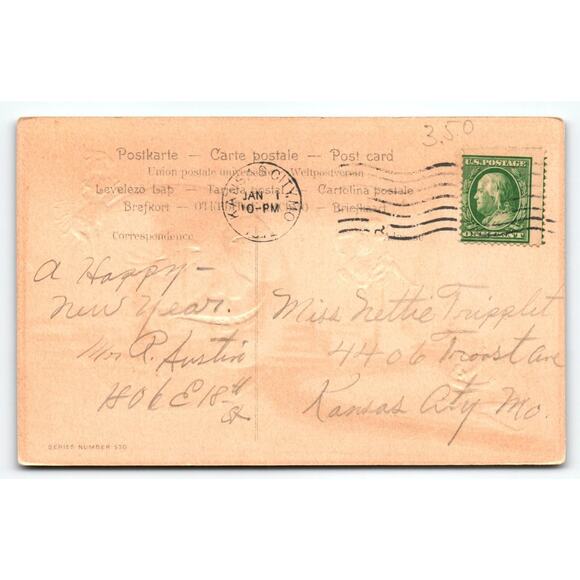 3.50
Postkarte — Carte postale — Post card
Union postale universelle Weltpostverein
Levelezo Lap — Tarjeta postal — Cartolina postale
Brefkort — Briefkaart
Correspondence
KANSAS CITY, MO.
JAN 1
10-PM
U.S. POSTAGE
ONE CENT
A Happy —
New Year.
R. Austin
1806 E 18th
St
Miss Nettie Tripplet
4406 Troost Ave
Kansas City Mo.
SERIES NUMBER 530